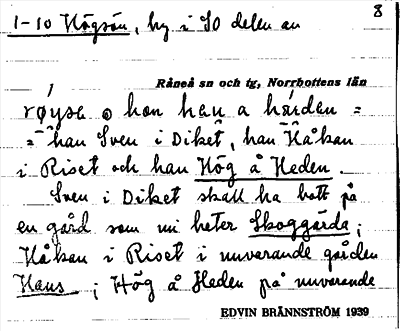 8
1-10 Högsön, by i SO delen av
Råneå sn och tg, Norrbottens län
røysa o hon han a hárden =
= han Sven i Diket, han Håkan
i Riset och han Hög å Heden.
Sven i Diket skall ha bott på
en gård som nu heter Skoggärda;
Håkan i Riset i nuvarande gården
Hans ; Hög å Heden på nuvarande
EDVIN BRÄNNSTRÖM 1939